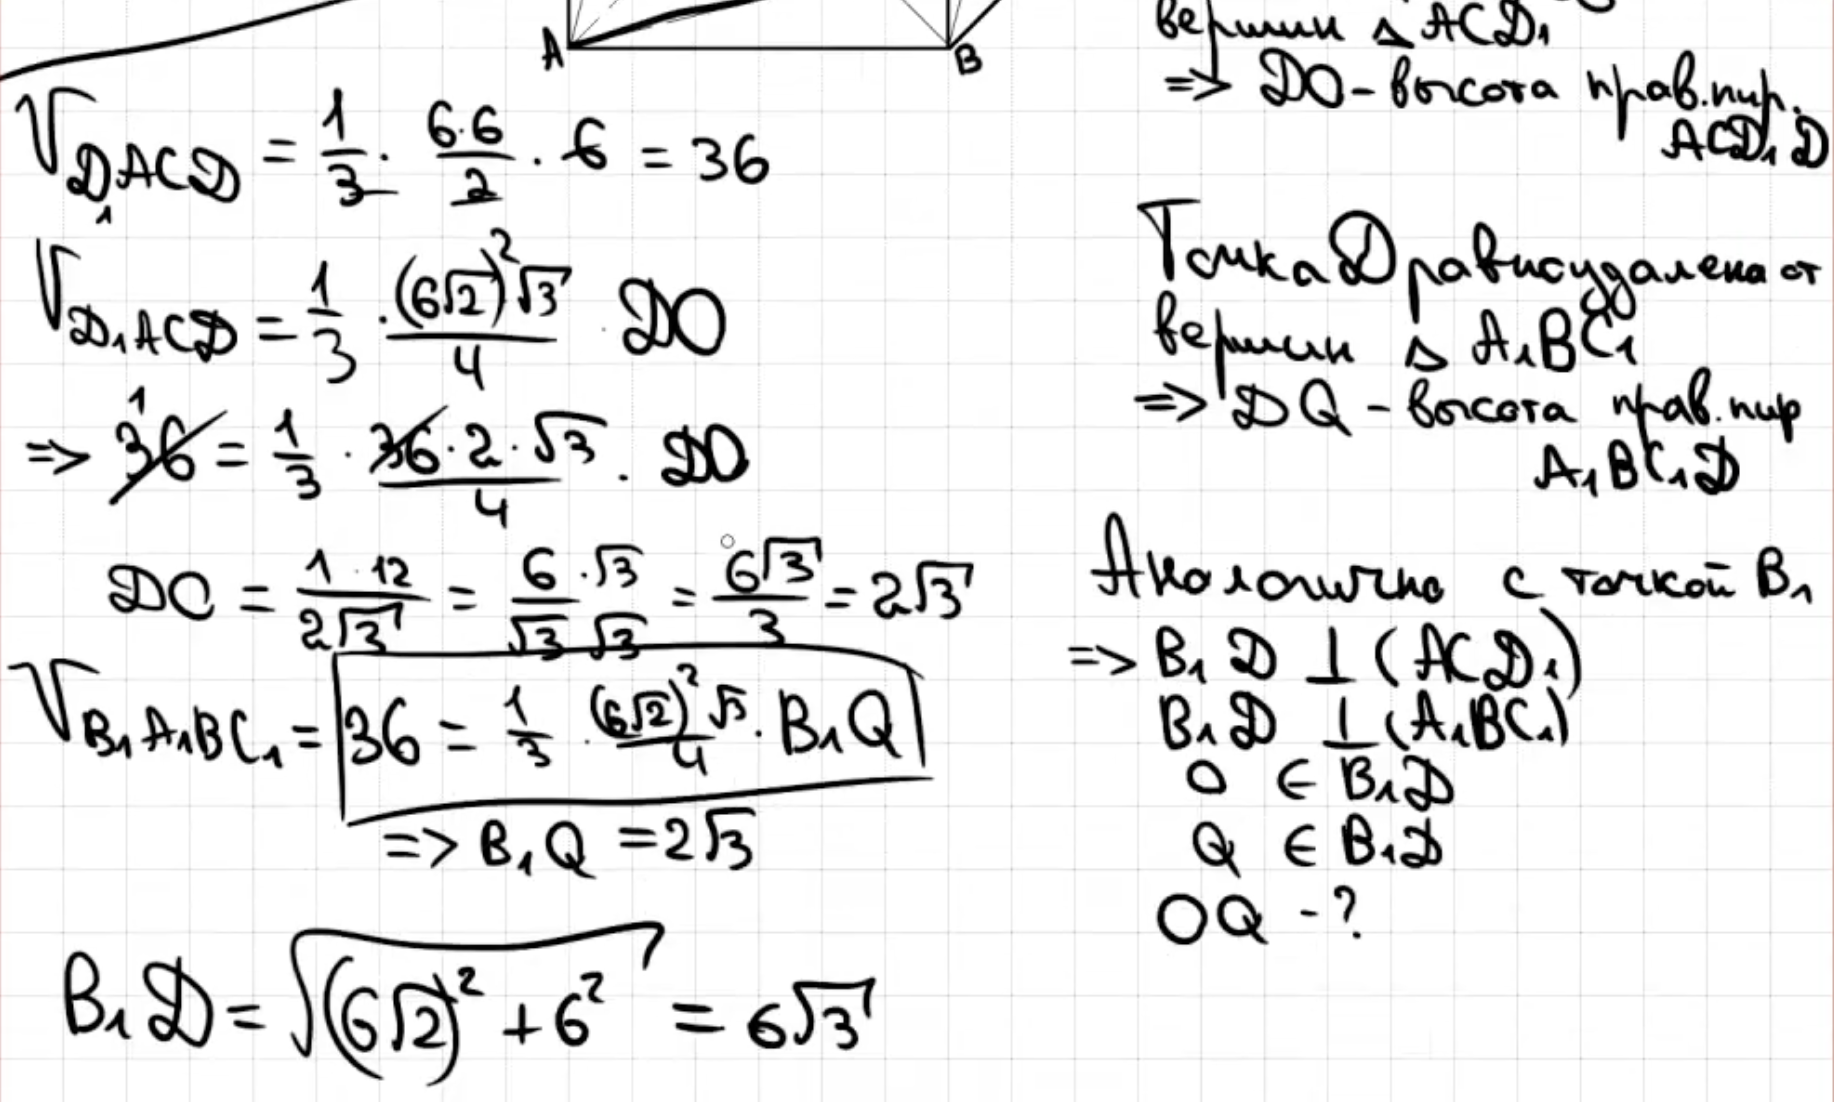 A B
V_{D₁ACD} = 1/3 · 6·6/2 · 6 = 36
V_{D₁ACD} = 1/3 · (6√2)²√3/4 · DO
=> 36 = 1/3 · 36·2·√3/4 · DO
1
DO = 1·12/2√3 = 6·√3/√3 √3 = 6√3/3 = 2√3
V_{B₁A₁BC₁} = 36 = 1/3 · (6√2)²√3/4 · B₁Q
=> B₁Q = 2√3
B₁D = √((6√2)² + 6²) = 6√3
вершин △ ACD₁
=> DO - высота прав.пир.
ACD₁D
Точка D равноудалена от
вершин △ A₁BC₁
=> DQ - высота прав.пир
A₁BC₁D
Аналогично с точкой B₁
=> B₁D ⊥ (ACD₁)
B₁D ⊥ (A₁BC₁)
O ∈ B₁D
Q ∈ B₁D
OQ - ?